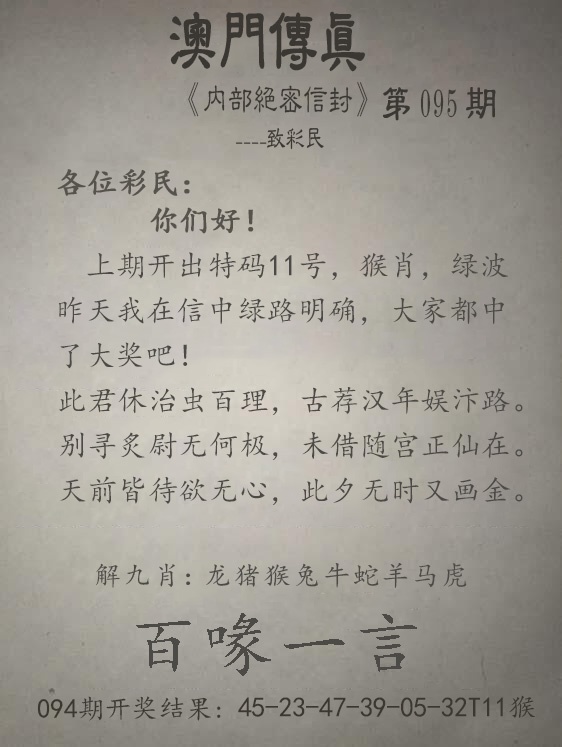 澳門傳眞
《内部絕密信封》第095期
----致彩民
各位彩民：
你们好！
上期开出特码11号，猴肖，绿波
昨天我在信中绿路明确，大家都中
了大奖吧！
此君休治虫百理，古荐汉年娱汴路。
别寻炙尉无何极，未借随宫正仙在。
天前皆待欲无心，此夕无时又画金。
解九肖：龙猪猴兔牛蛇羊马虎
百喙一言
094期开奖结果：45-23-47-39-05-32T11猴